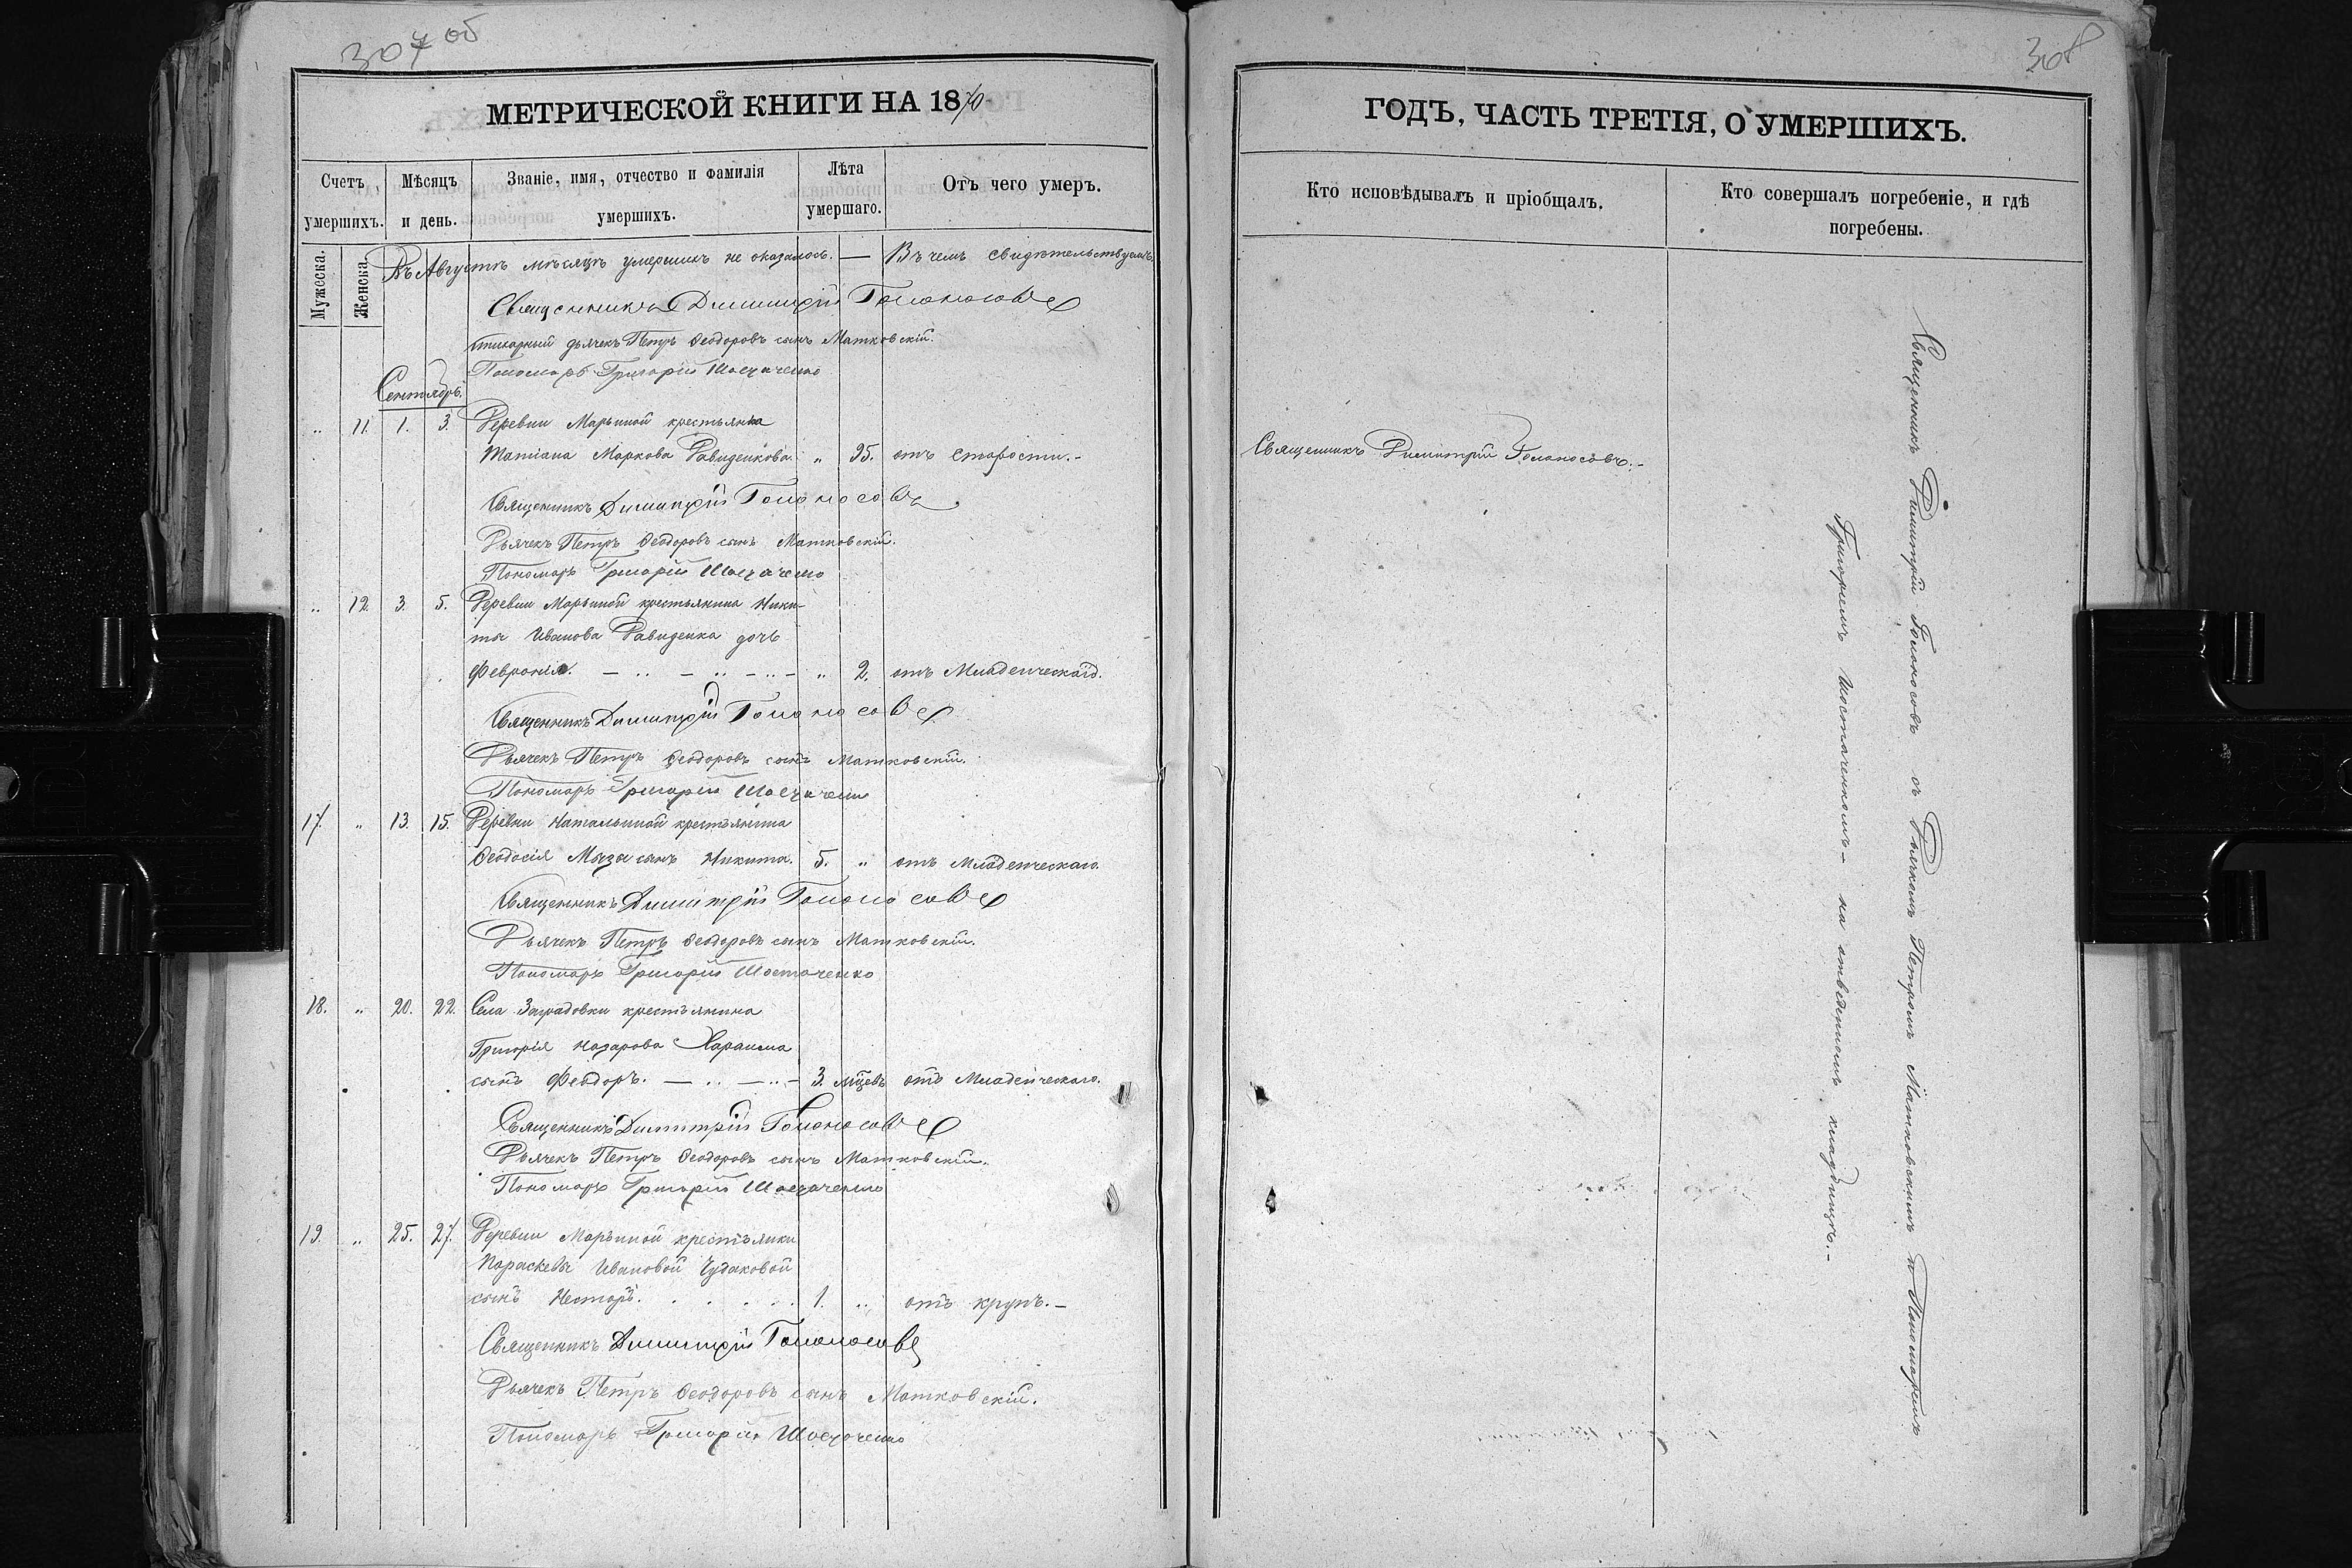 307 об
МЕТРИЧЕСКОЙ КНИГИ НА 1870
Счетъ умершихъ.
Мужеска.
Женска.
Мѣсяцъ и день.
Званіе, имя, отчество и фамилія умершихъ.
Лѣта умершаго.
Отъ чего умеръ.
Въ Августѣ мѣсяцѣ умершихъ не оказалось. — Въ чемъ свидѣтельствуемъ
Священникъ Димитрій Голоносовъ
дьячекъ Петръ Ѳеодоровъ сынъ Матковскій.
Пономарь Григорій Шостаченко
Сентябрь.
" 11. 1. 3. Деревни Марьиной крестьянка
Татіана Маркова Давиденкова. " 95. отъ старости.-
Священникъ Димитрій Голоносовъ
Дьячекъ Петръ Ѳеодоровъ сынъ Матковскій.
Пономарь Григорій Шостаченко
" 12. 3. 5. Деревни Марьиной крестьянина Ники-
ты Иванова Давиденка дочь
Февронія. — " — " — " — " 2. отъ Младенческаго.
Священникъ Димитрій Голоносовъ
Дьячекъ Петръ Ѳеодоровъ сынъ Матковскій.
Пономарь Григорій Шостаченко
17. " 13. 15. Деревни Натальиной крестьянина
Ѳеодосія Мызы сынъ Никита. 5. " отъ Младенческаго.
Священникъ Димитрій Голоносовъ
Дьячекъ Петръ Ѳеодоровъ сынъ Матковскій.
Пономарь Григорій Шостаченко
18. " 20. 22. Села Заградовки крестьянина
Григорія Назарова Хараима
сынъ Феодоръ. — " — " — 3. мцевъ отъ Младенческаго.
Священникъ Димитрій Голоносовъ
Дьячекъ Петръ Ѳеодоровъ сынъ Матковскій.
Пономарь Григорій Шостаченко
19. " 25. 27. Деревни Марьиной крестьянки
Параскевы Ивановой Чудаковой
сынъ Несторъ. . . . . . 1. " отъ крупъ.-
Священникъ Димитрій Голоносовъ
Дьячекъ Петръ Ѳеодоровъ сынъ Матковскій.
Пономарь Григорій Шостаченко
308
ГОДЪ, ЧАСТЬ ТРЕТІЯ, О УМЕРШИХЪ.
Кто исповѣдывалъ и пріобщалъ.
Кто совершалъ погребеніе, и гдѣ
погребены.
Священникъ Димитрій Голоносовъ.-
Священникъ Димитрій Голоносовъ съ Дьячкомъ Петромъ Матковскимъ и Пономаремъ
Григоріемъ Шостаченкомъ - на отведенномъ кладбищѣ.-